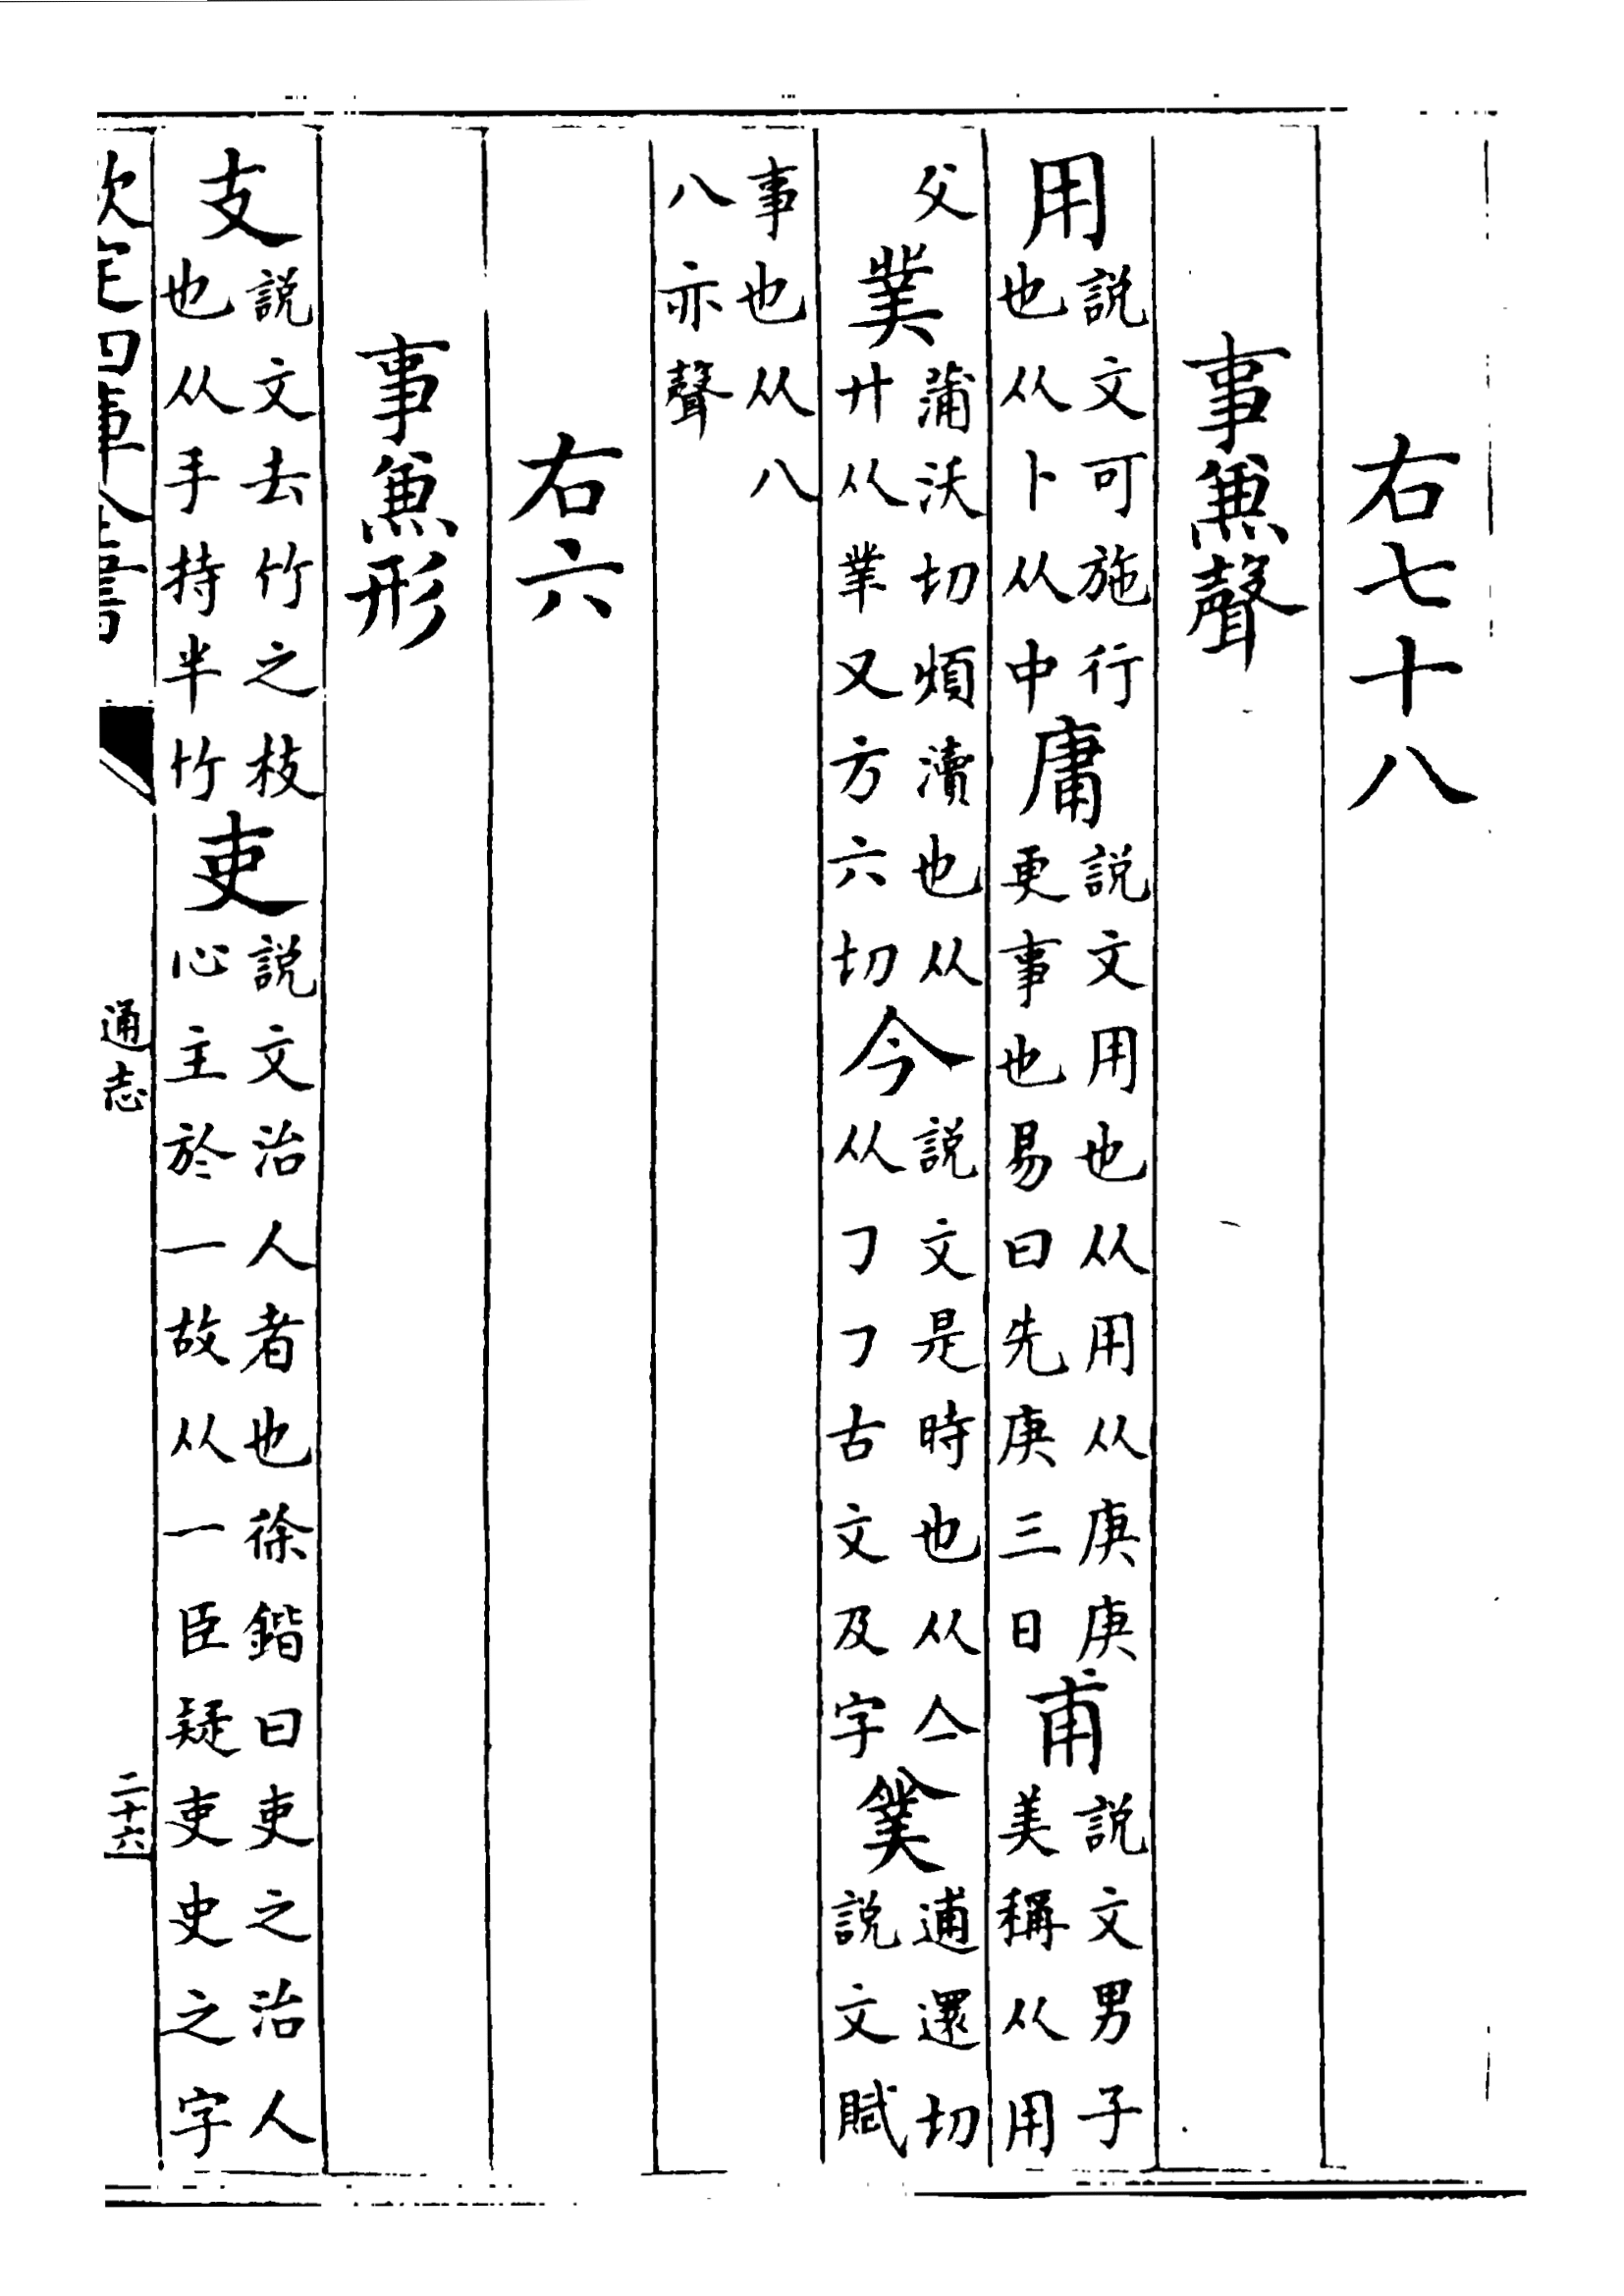 右七十八
事兼聲
用說文可施行也从卜从中庸說文用也从用从庚庚更事也易曰先庚三日甫說文男子美稱从用
父菐蒲沃切煩瀆也从廾从丵又方六切今說文是時也从亼从㇆㇆古文及字𠔻逋還切說文賦
事也从八八亦聲
右六
事兼形
支說文去竹之枝也从手持半竹吏說文治人者也徐鍇曰吏之治人心主於一故从一臣疑吏史之字
欽定四庫全書
通志
二十六